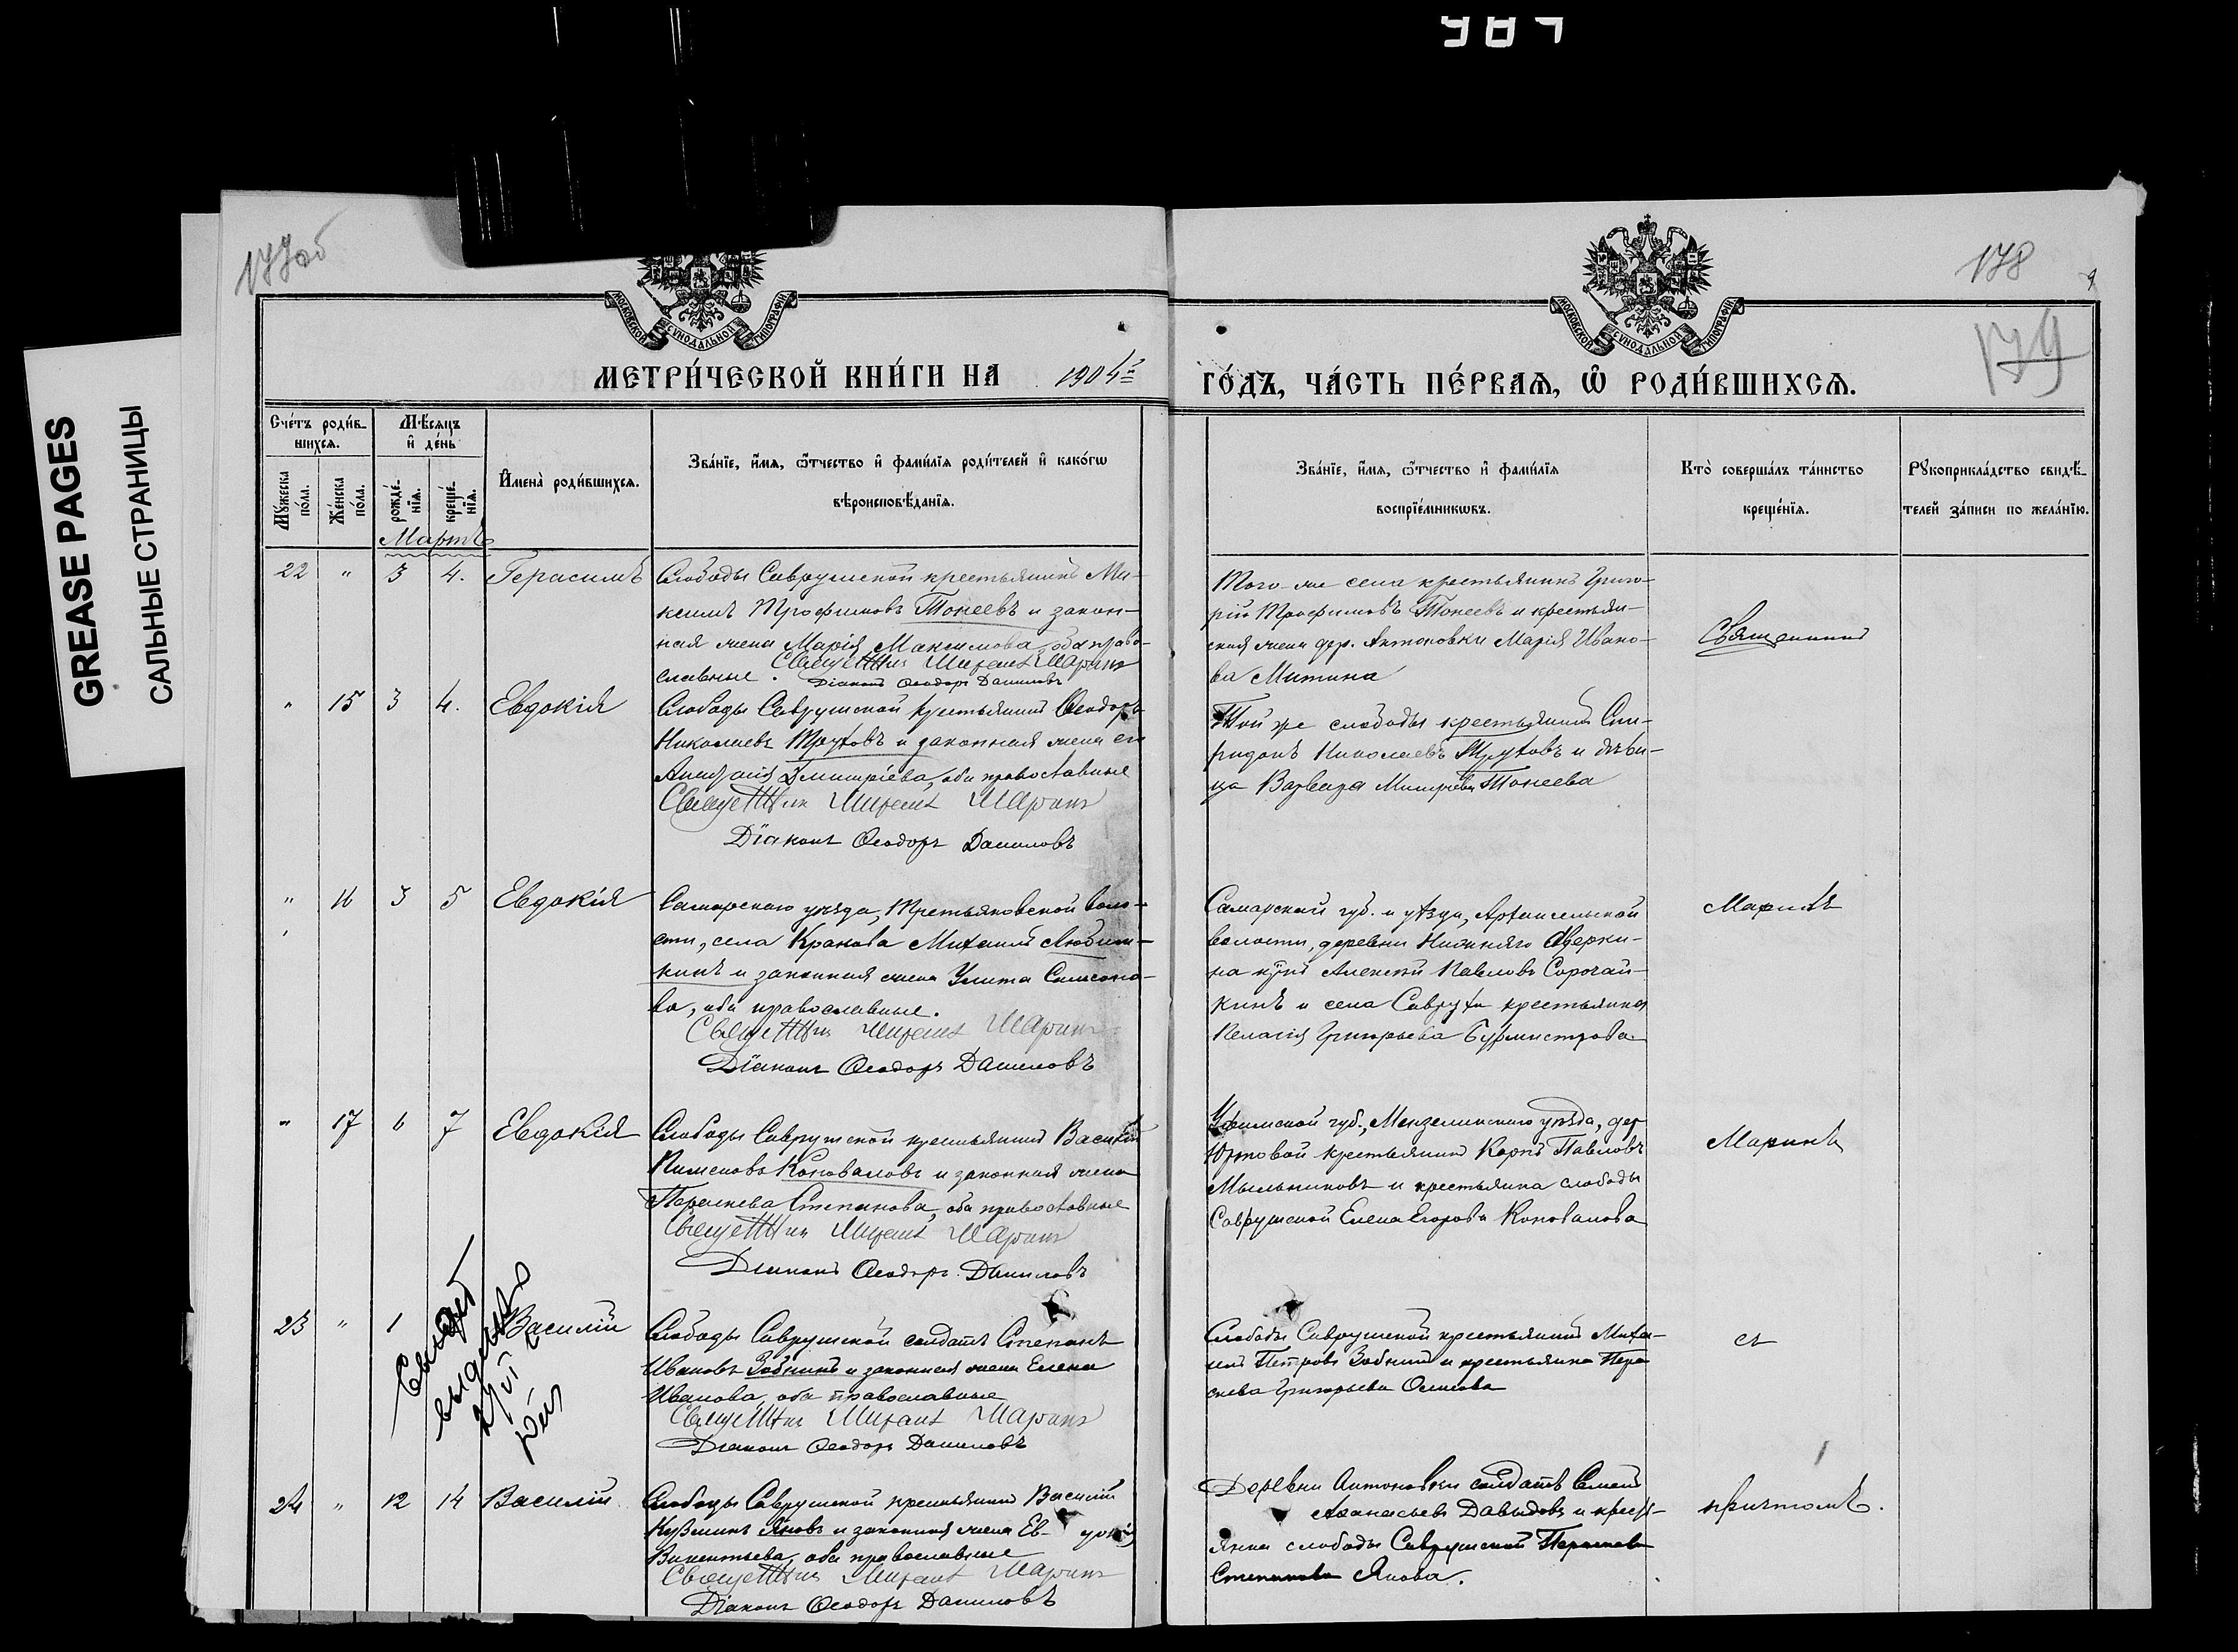 984
GREASE PAGES
САЛЬНЫЕ СТРАНИЦЫ
177об
178
179
МОСКОВСКОЙ СУНОДАЛЬНОЙ ТИПОГРАФІИ
МОСКОВСКОЙ СУНОДАЛЬНОЙ ТИПОГРАФІИ
МЕТРИ́ЧЕСКОЙ КНИ́ГИ НА 1904й ГО́ДЪ, ЧА́СТЬ ПЕ́РВАЯ, Ѽ РОДИ́ВШИХСЯ.
Сче́тъ роди́вшихся.
Мѣ́сяцъ и де́нь
Мꙋ́жеска по́ла.
Же́нска по́ла.
рожде́нїя.
креще́нїя.
И҆мена̀ роди́вшихся.
Зва́нїе, и҆́мя, ѻ҆́тчество и҆ фами́лїя роди́телей и҆ како́гѡ вѣроисповѣ́данїя.
Зва́нїе, и҆́мя, ѻ҆́тчество и҆ фами́лїя воспрїе́мникѡвъ.
Кто̀ соверша́лъ та́инство креще́нїя.
Рꙋкоприкла́дство свидѣ́телей за́писи по жела́нїю.
Мартъ
22 " 3 4. Герасимъ
Слободы Саврушской крестьянинъ Ма-
ксимъ Трофимовъ Токеевъ и закон-
ная жена Марія Максимова, оба право-
славные.
Священник Михаил Маринъ
Діаконъ Ѳеодоръ Даниловъ
Того-же села крестьянинъ Григо-
рій Трофимовъ Токеевъ и крестьян-
ская жена дер. Антоновки Марія Ивано-
ва Митина
Священникъ
" 15 3 4. Евдокія
Слободы Саврушской крестьянинъ Ѳеодоръ
Николаевъ Труховъ и законная жена его
Анастасія Дмитріева, оба православные
Священник Михаил Маринъ
Діаконъ Ѳеодоръ Даниловъ
Той же слободы крестьянинъ Спи-
ридонъ Николаевъ Труховъ и дѣви-
ца Варвара Токеева
" 16 3 5 Евдокія
Самарскаго уѣзда, Третьяковской воло-
сти, села Михаилъ Любим-
кинъ и законная жена Улита Самсоно-
ва, оба православные.
Священник Михаил Маринъ
Діаконъ Ѳеодоръ Даниловъ
Самарской губ. и уѣзда,
волости, деревни Нижняго Аверки-
на Алексѣй Павловъ Сорочай-
кинъ и села Саврухи крестьянка
Пелагія Григорьева Бурмистрова
Маринъ
" 17 6 7 Евдокія
Слободы Саврушской крестьянинъ Василій
Пименовъ Коноваловъ и законная жена
Параскева Степанова, оба православные
Священник Михаил Маринъ
Діаконъ Ѳеодоръ Даниловъ
Уфимской губ., Мензелинскаго уѣзда, дер
Юртовой крестьянинъ Карпъ Павловъ
Мыльниковъ и крестьянка слободы
Саврушской Елена Егорова Коновалова
Маринъ
23 " 1 Василій
Слободы Саврушской солдатъ Степанъ
Ивановъ Зобнинъ и законная жена Елена
Иванова, оба православные
Священник Михаил Маринъ
Діаконъ Ѳеодоръ Даниловъ
Слободы Саврушской крестьянинъ Миха-
илъ Петровъ Зобнинъ и крестьянка Пара-
скева Григорьева Осипова
съ
24 " 12 14 Василій
Слободы Саврушской крестьянинъ Василій
Кузминъ Яновъ и законная жена Ев-докія
Викентьева, оба православные
Священник Михаил Маринъ
Діаконъ Ѳеодоръ Даниловъ
Деревни Антоновки солдатъ
Аѳанасьевъ Давыдовъ и кресть-
янка слободы Саврушской Параскева
Степанова Янова.
причтомъ.